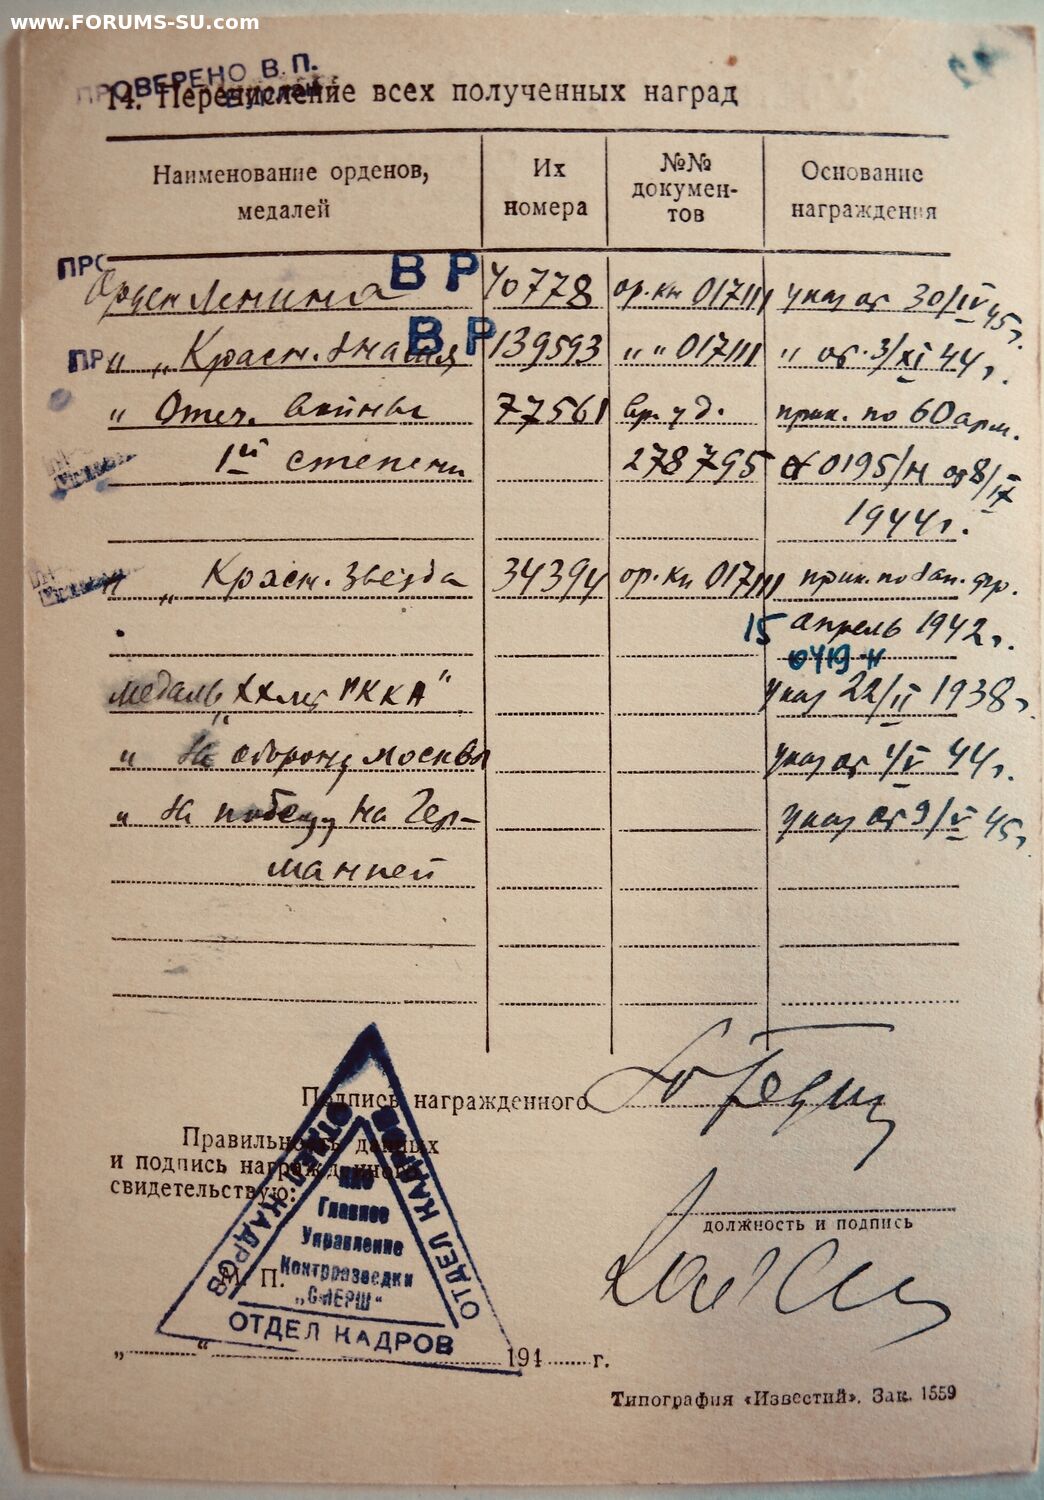 www.FORUMS-SU.com
ПРОВЕРЕНО В. П.
14. Перечисление всех полученных наград
Наименование орденов, медалей
Их номера
№№ документов
Основание награждения
ПРО
В Р
Орден Ленина 40778 ор. кн 017111 указ от 30/IV 45г.
ПР
В Р
" " Красн. Знамя 139593 " " 017111 " от 3/XI 44г.
" Отеч. войны 77561 вр. уд. прик. по 60 арм.
1ой степени 278795 № 0195/н от 8/IX
1944г.
" " Красн. Звезда 34394 ор. кн 017111 прик. по Зап. фр.
15 апрель 1942г.
0419-н
медаль "XX лет РККА" указ 22/II 1938г.
" За оборону Москвы указ от 4/V 44г.
" За победу на Гер- указ от 9/V 45г.
манией
Подпись награжденного
Правильность данных
и подпись награжденного
свидетельствую:
должность и подпись
М. П.
ОТДЕЛ КАДРОВ
ОТДЕЛ КАДРОВ
НКО
Главное
Управление
Контрразведки
„СМЕРШ“
ОТДЕЛ КАДРОВ
„ “ 194 г.
Типография «Известий». Зак. 1559